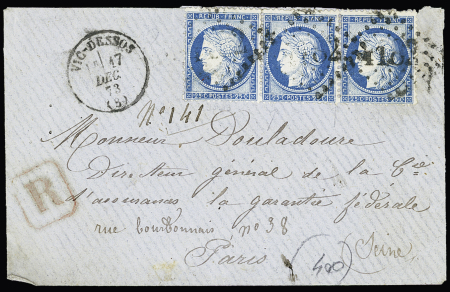 REPUB. FRANC. REPUB. FRANC. REPUB. FRANC.
25 C. POSTES 25 C. 25 C. POSTES 25 C. 25 C. POSTES 25 C.
VIC-DESSOS
17
DEC.
73
(8)
N° 141
Monsieur Pouladoure
Directeur général de la Cie
d'assurances la garantie fédérale
R
rue bourbonnais n° 38
Paris
(400)
Seine